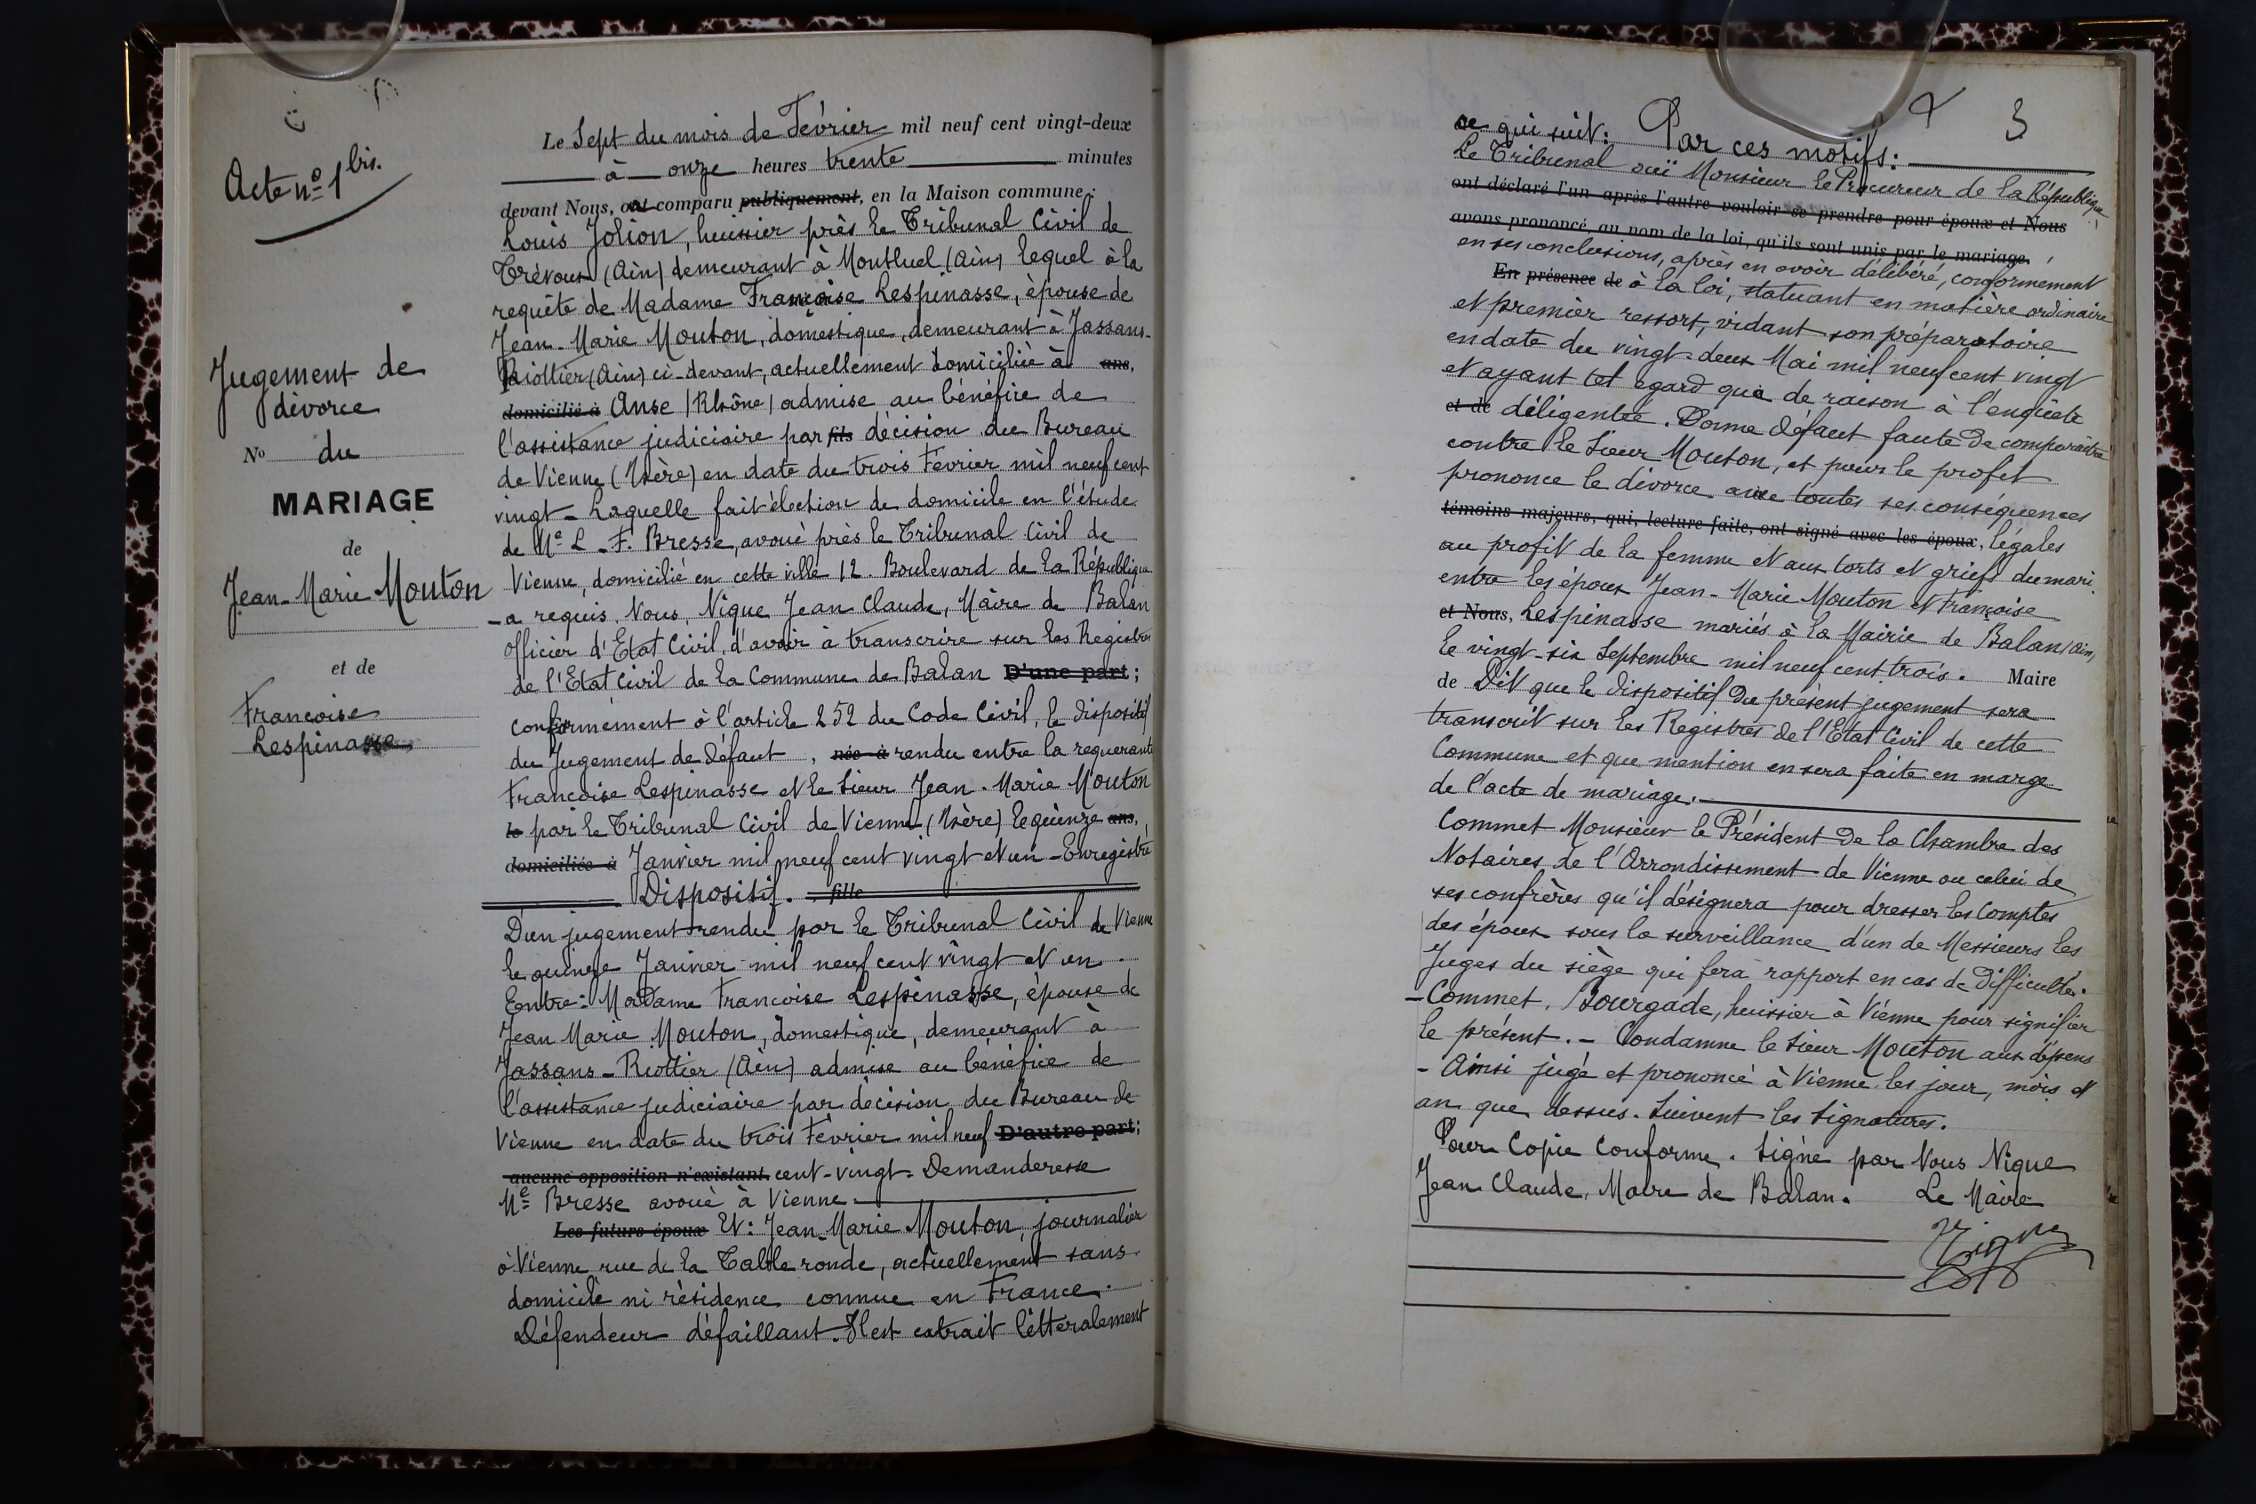 Acte nº 1 bis.
Jugement de
divorce
No du
MARIAGE
de
Jean-Marie Mouton
et de
Francoise
Lespinasse
Le Sept du mois de Février mil neuf cent vingt-deux
à onze heures trente minutes
devant Nous, a comparu publiquement, en la Maison commune:
Louis Jolion, huissier près le Tribunal Civil de
Trévoux (Ain) demeurant à Montluel (Ain) lequel à la
requête de Madame Françoise Lespinasse, épouse de
Jean-Marie Mouton, domestique, demeurant à Jassans-
Riottier (Ain) ci-devant, actuellement domiciliée à ans,
domicilié à Anse (Rhône) admise au bénéfice de
l'assistance judiciaire par fils décision du Bureau
de Vienne (Isère) en date du trois Fevrier mil neuf cent
vingt - Laquelle fait élection de domicile en l'étude
de Me L. F. Bresse, avoué près le Tribunal Civil de
Vienne, domicilié en cette ville 12. Boulevard de la République
- a requis, Nous, Nique Jean Claude, Maire de Balan
officier d'Etat Civil, d'avoir à transcrire sur les Registres
de l'Etat Civil de la Commune de Balan D'une part;
conformément à l'article 252 du Code Civil, le dispositif
du Jugement de défaut, née à rendu entre la requerante
Francoise Lespinasse et le Sieur Jean-Marie Mouton
le par le Tribunal Civil de Vienne (Isère) le quinze ans,
domiciliée à Janvier mil neuf cent vingt et un - Enregistré
Dispositif. fille
D'un jugement rendu par le Tribunal Civil de Vienne
le quinze Janvier mil neuf cent vingt et un
Entre: Madame Francoise Lespinasse, épouse de
Jean Marie Mouton, domestique, demeurant à
Jassans-Riottier (Ain) admise au bénéfice de
l'assistance judiciaire par décision du Bureau de
Vienne en date du trois Février mil neuf D'autre part;
aucune opposition n'existant. cent-vingt - Demanderesse
Me Bresse avoué à Vienne.
Les futurs époux Et: Jean-Marie Mouton, journalier
à Vienne rue de la Table ronde, actuellement sans
domicile ni résidence connue en France.
Défendeur défaillant. Il est extrait littéralement
3
ce qui suit: Par ces motifs:
Le Tribunal ouï Monsieur le Procureur de la République
ont déclaré l'un après l'autre vouloir se prendre pour époux et Nous
avons prononcé, au nom de la loi, qu'ils sont unis par le mariage.
en ses conclusions, après en avoir délibéré, conformément
En présence de à la loi, statuant en matière ordinaire
et premier ressort, vidant son préparatoire
en date du vingt-deux Mai mil neuf cent vingt
et ayant tel égard que de raison à l'enquête
et de diligentée. Donne défaut faute de comparaître
contre le Sieur Mouton, et pour le profit
prononce le divorce avec toutes ses conséquences
témoins majeurs, qui, lecture faite, ont signé avec les époux, légales
au profit de la femme et aux torts et griefs du mari
entre les époux Jean-Marie Mouton et Françoise
et Nous, Lespinasse mariés à la Mairie de Balan (Ain)
le vingt-six Septembre mil neuf cent trois. Maire
de Dit que le dispositif du présent jugement sera
transcrit sur les Registres de l'Etat Civil de cette
Commune et que mention en sera faite en marge
de l'acte de mariage.
Commet Monsieur le Président de la Chambre des
Notaires de l'Arrondissement de Vienne ou celui de
ses confrères qu'il désignera pour dresser les comptes
des époux sous la surveillance d'un de Messieurs les
Juges du siège qui fera rapport en cas de difficulté.
- Commet, Bourgade, huissier à Vienne pour signifier
le présent. - Condamne le Sieur Mouton aux dépens
- Ainsi jugé et prononcé à Vienne les jour, mois et
an que dessus. Suivent les signatures.
Pour Copie Conforme. Signé par Nous Nique
Jean Claude, Maire de Balan. Le Maire
Nique